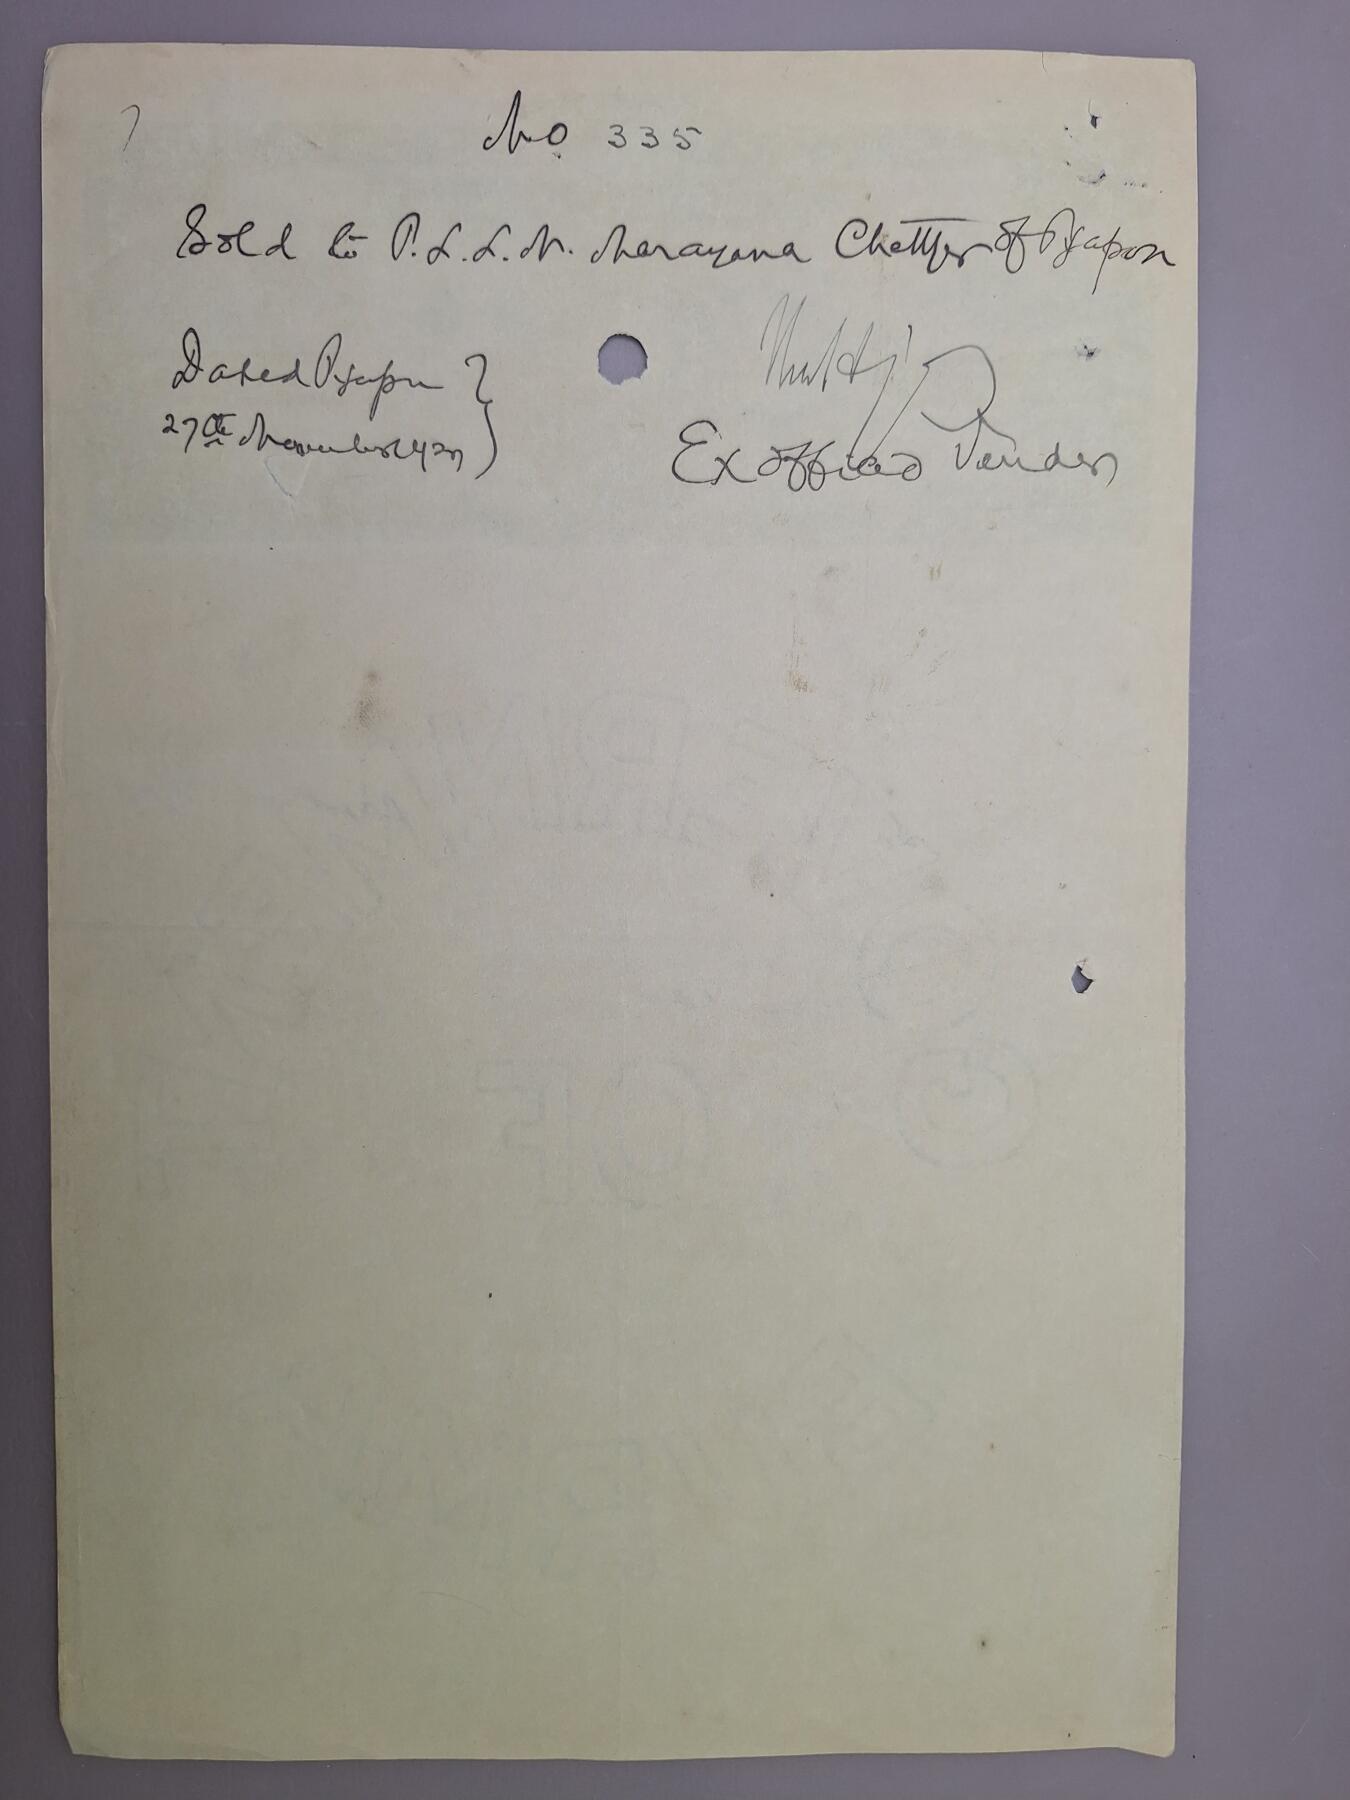 No 335
Sold to P. L. L. N. Narayana Chettyar of Pyapon
Dated Pyapon
27th November
Ex officio Vendor